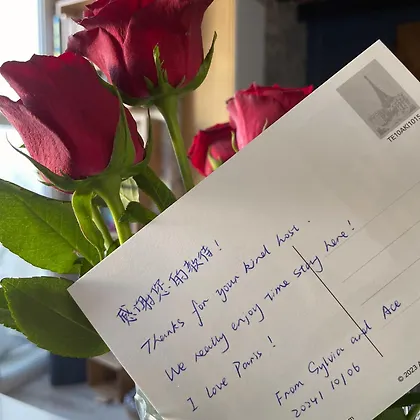 感谢您的款待!
Thanks for your kind host.
We really enjoy time stay here!
I love Paris!
From Sylvia and Ace
2024/10/06
TE10AKI1015
© 2023